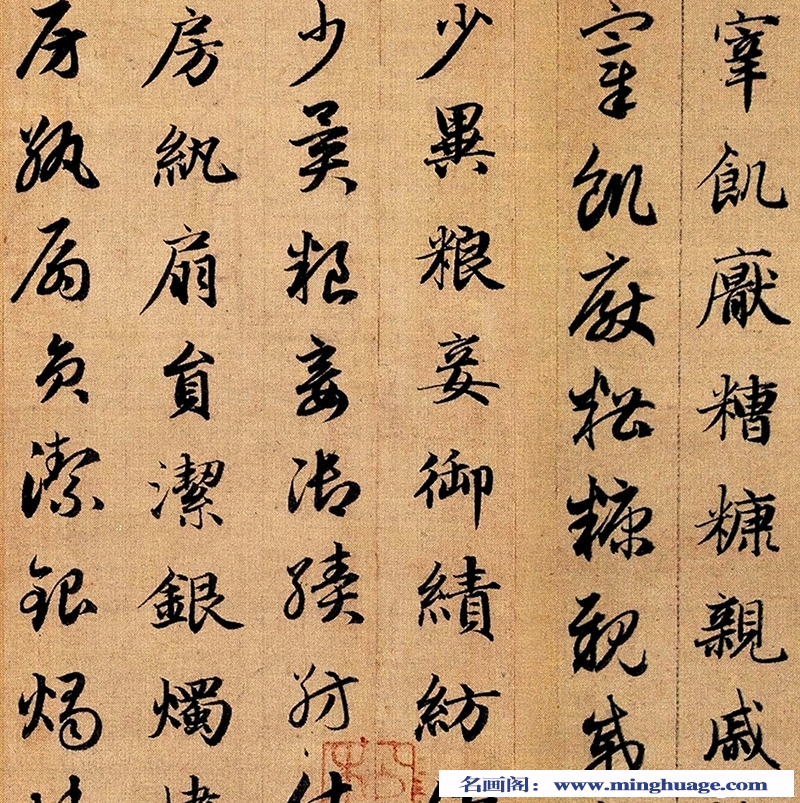 宰飢厭糟糠親戚
宰飢厭糟糠親戚
少異粮妾御績紡
少異粮妾御績紡
房紈扇員潔銀燭
房紈扇員潔銀燭
名画阁：www.minghuage.com